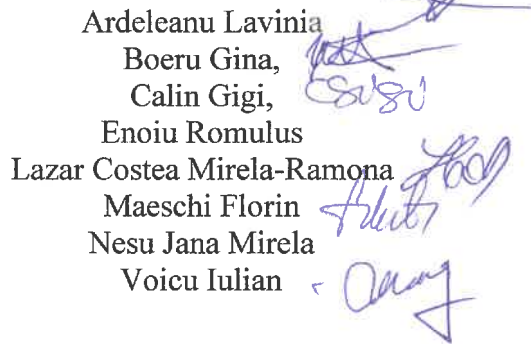 Ardeleanu Lavinia
Boeru Gina,
Calin Gigi,
Enoiu Romulus
Lazar Costea Mirela-Ramona
Maeschi Florin
Nesu Jana Mirela
Voicu Iulian